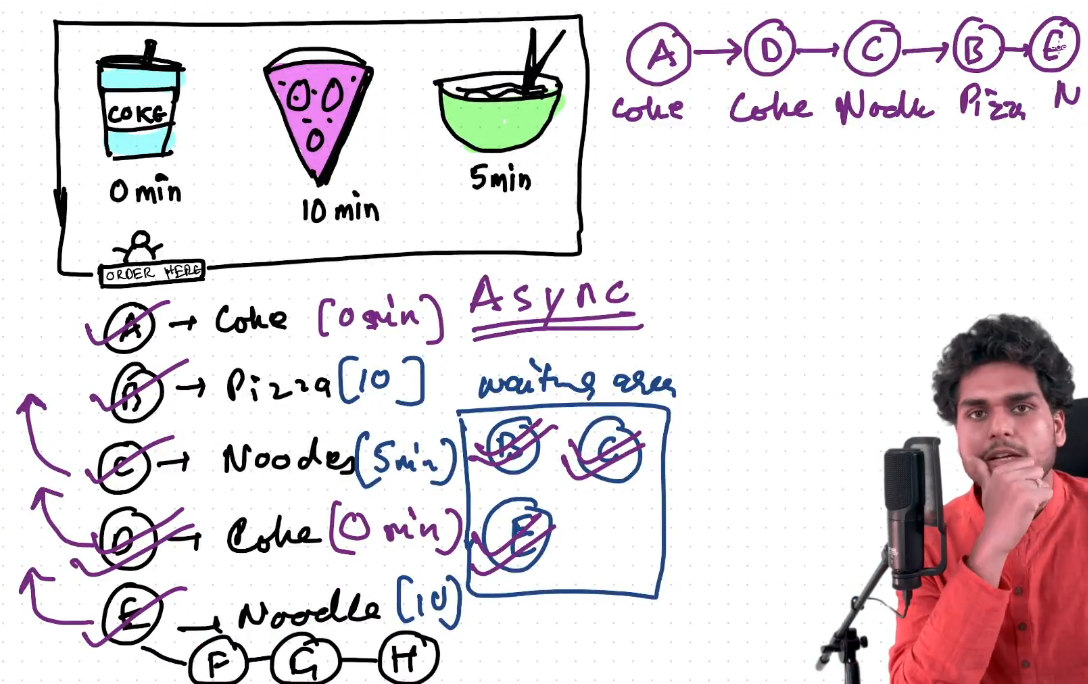 COKE
0 min
10 min
5min
ORDER HERE
A → D → C → B → E
Coke Coke Noodle Pizza N
Async
A → Coke [0 min]
B → Pizza [10]
C → Noodes (5min)
D → Coke [0 min]
E → Noodle [10]
F G H
waiting area
B C
E